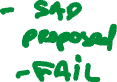 - SAD
proposed
- FAIL